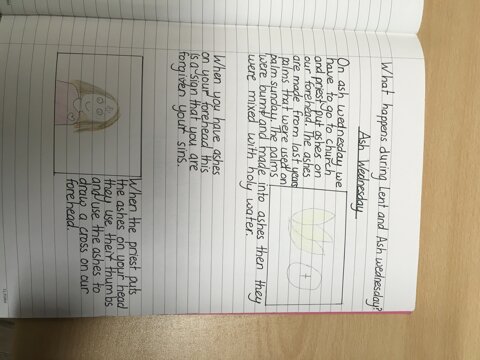 What happens during Lent and Ash wednesday?
Ash Wednesday
On ash wednesday we
have to go to church
and priest put ashes on
our forehead. The ashes
are made from last years
palms that were used on
palm sunday. The palms
were burnt and made into ashes then they
were mixed with holy water.
When you have ashes
on your forehead this
is a sign that you are
forgiven your sins.
When the priest puts
the ashes on your head
they use their thumbs
and use the ashes to
draw a cross on our
forehead.